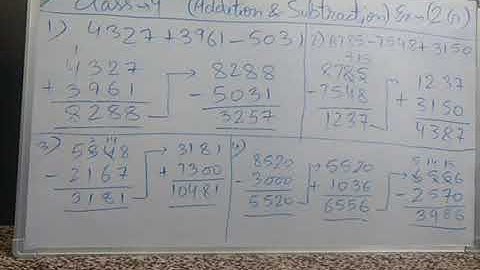 Class-4 (Addition & Subtraction) Ex-(2A)
1) 4327+3961-5031
1
4327
+ 3961
8288
8288
- 5031
3257
2) 8785-7548+3150
7 15
8785
- 7548
1237
1237
+ 3150
4387
3)
2 14
5348
- 2167
3181
3181
+ 7300
10481
4)
8520
- 3000
5520
5520
+ 1036
6556
5 14 15
6556
- 2570
3986